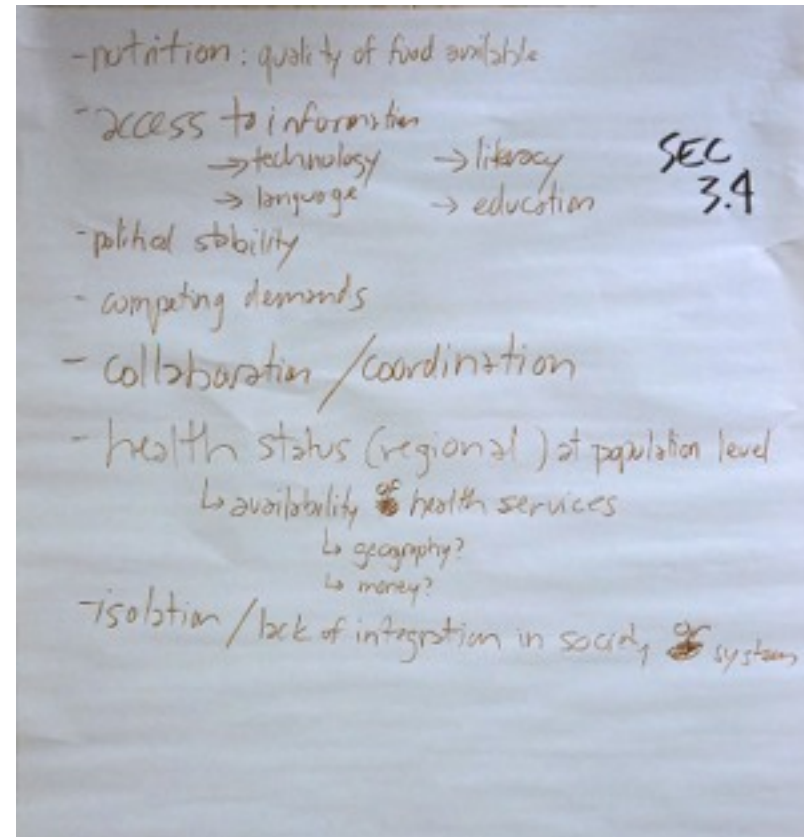 - nutrition : quality of food available
- access to information
→ technology → literacy
→ language → education
SEC
3.4
- political stability
- competing demands
- collaboration / coordination
- health status (regional) at population level
↳ availability of health services
↳ geography?
↳ money?
- isolation / lack of integration in society or system